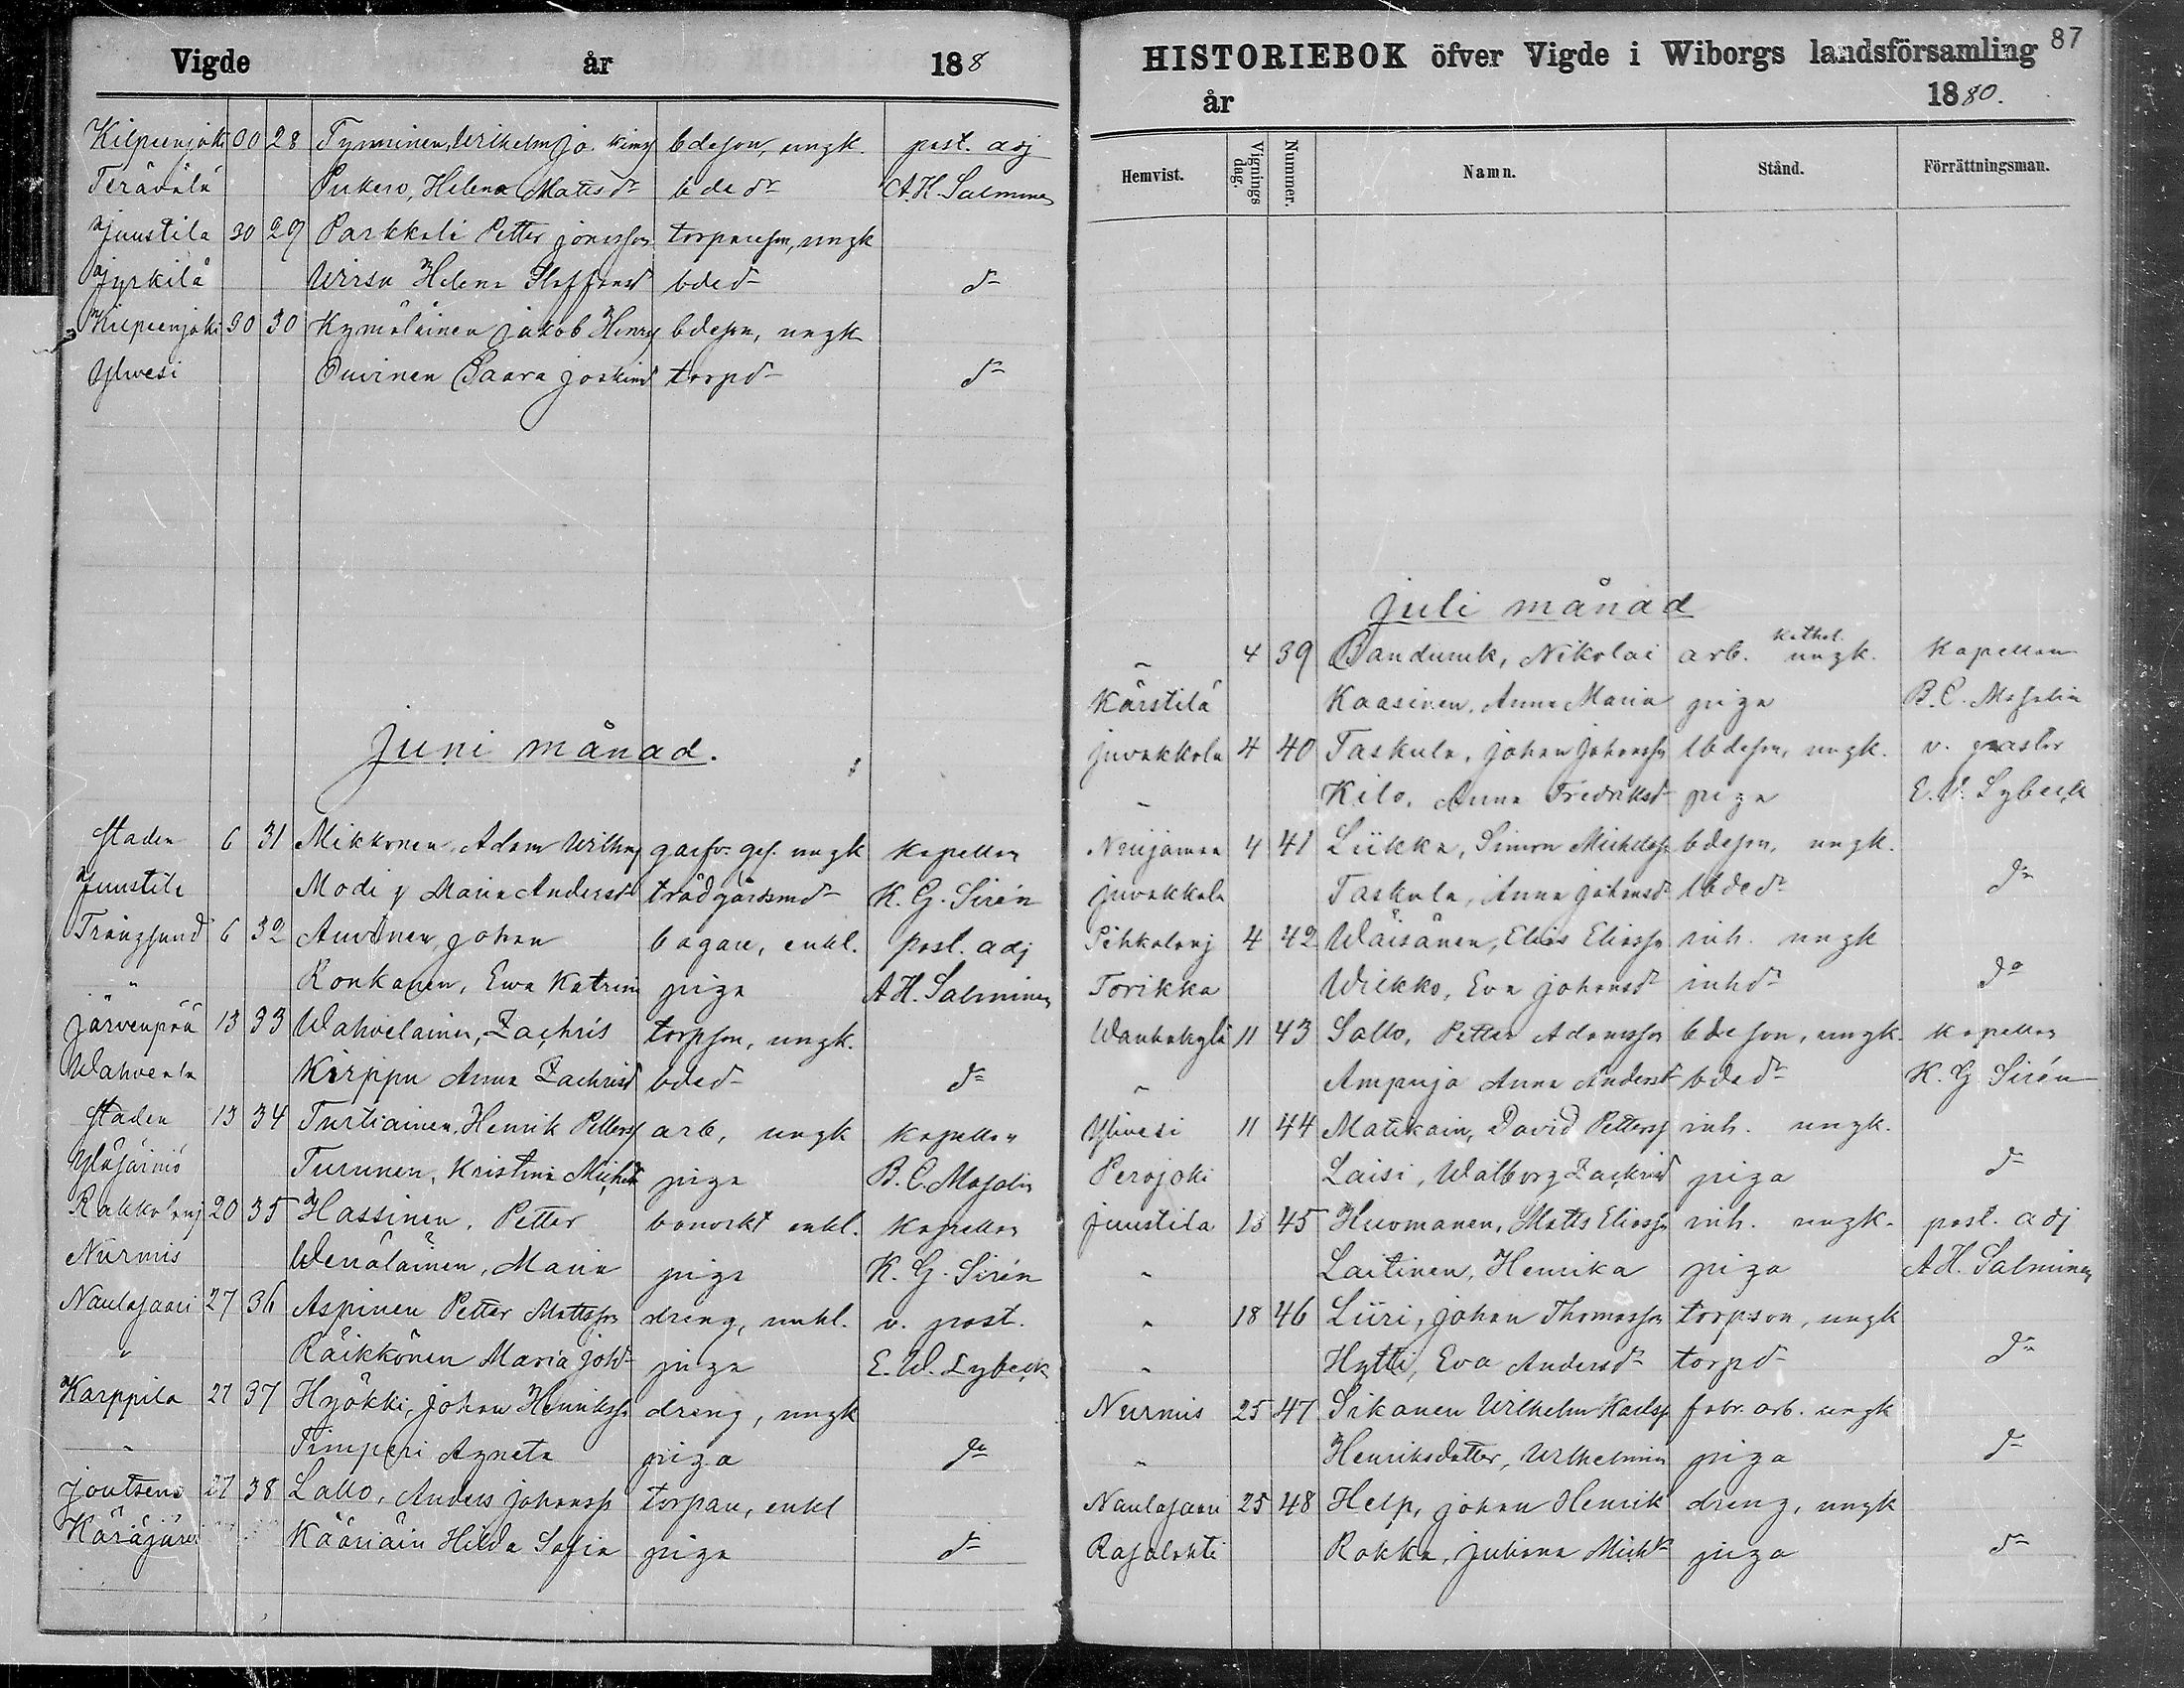 Vigde år 188
Kilpeenjoki 30 28 Tynninen, Wilhelm Jo. kims bdeson, ungk. past. adj
Terävälä Pukero, Helena Mattsdr bdedr A. H. Salminen
Juustila 30 29 Parkkali Petter Jönsson torpareson, ungk
Jyrkilä Wirsu Helena Staffansd bded do
Kilpeenjoki 30 30 Kymäläinen Jakob Henrs bdeson, ungk
Ylivesi Ouvinen Saara Joakimsd torpd do
Juni månad.
Staden 6 31 Mikkonen, Adam Wilhms garfv. ges. ungk kapellan
Juustila Modig Maria Andersdr trädgårdsmdr K. G. Sirén
Trångsund 6 32 Auvinen, Johan bagare, enkl. past. adj
" Ronkanen, Ewa Katrina piga A. H. Salminen
Järvenpää 13 33 Wahvelainen, Zachris torpson, ungk.
Wahvela Kirppu Anna Zachrisd bded do
Staden 13 34 Turtiainen, Henrik Petterss arb, ungk kapellan
Yläsäiniö Turunen, Kristina Michelsd piga B. C. Masalin
Rakkolanj 20 35 Hassinen, Petter bonorkt enkl. kapellan
Nurmis Wenäläinen, Maria piga K. G. Sirén
Naulasaari 27 36 Aspinen Petter Mattsson dreng, unkl. v. past.
" Räikkönen Maria Johdr piga E. W. Lybeck
Karppila 27 37 Hyökki, Johan Henriksson dreng, ungk
" Timperi Agneta piga do
Joutseno 27 38 Lallo, Anders Johanss torpare, enkl
Käräjärvi Kääriäin Hilda Sofia piga do
87
HISTORIEBOK öfver Vigde i Wiborgs landsförsamling
år 1880.
Hemvist. Vignings dag. Nummer. Namn. Stånd. Förrättningsman.
Juli månad
" 4 39 Bandurek, Nikolai arb. kathol. ungk. Kapellan
Kärstilä Kaasinen, Anna Maria piga B. C. Masalin
Juvakkola 4 40 Taskula, Johan Johansson lbdeson, ungk. v. pastor
" Kilo, Anna Fredriksdr piga E. W. Lybeck
Nuijamaa 4 41 Liikka, Simon Michelss bdeson, ungk.
Juvakkala Taskula, Anna Johansdr lbdedr do
Pihkalanj 4 42 Wäisänen, Elias Eliasson inh. ungk
Torikka Wilkko, Eva Johansdr inhdr do
Wanhakylä 11 43 Sallo, Petter Adamsson bdeson, ungk. kapellan
" Ampuja Anna Andersdr bdedr K. G. Sirén
Ylivesi 11 44 Matikain, David Petterss inh. ungk.
Perojoki Laisi, Walborg Zachrisd piga do
Juustila 18 45 Huomanen, Matts Eliasson inh. ungk. past. adj
" Laitinen, Henrika piga A. H. Salminen
" 18 46 Liiri, Johan Thomasson torpson, ungk
" Hytti, Eva Andersdr torpdr do
Nurmis 25 47 Sikanen Wilhelm Karlss fabr. arb. ungk
" Henriksdotter, Wilhelmina piga do
Naulasaari 25 48 Help, Johan Henrik dreng, ungk
Rasalahti Rokka, Juliana Michdr piga do